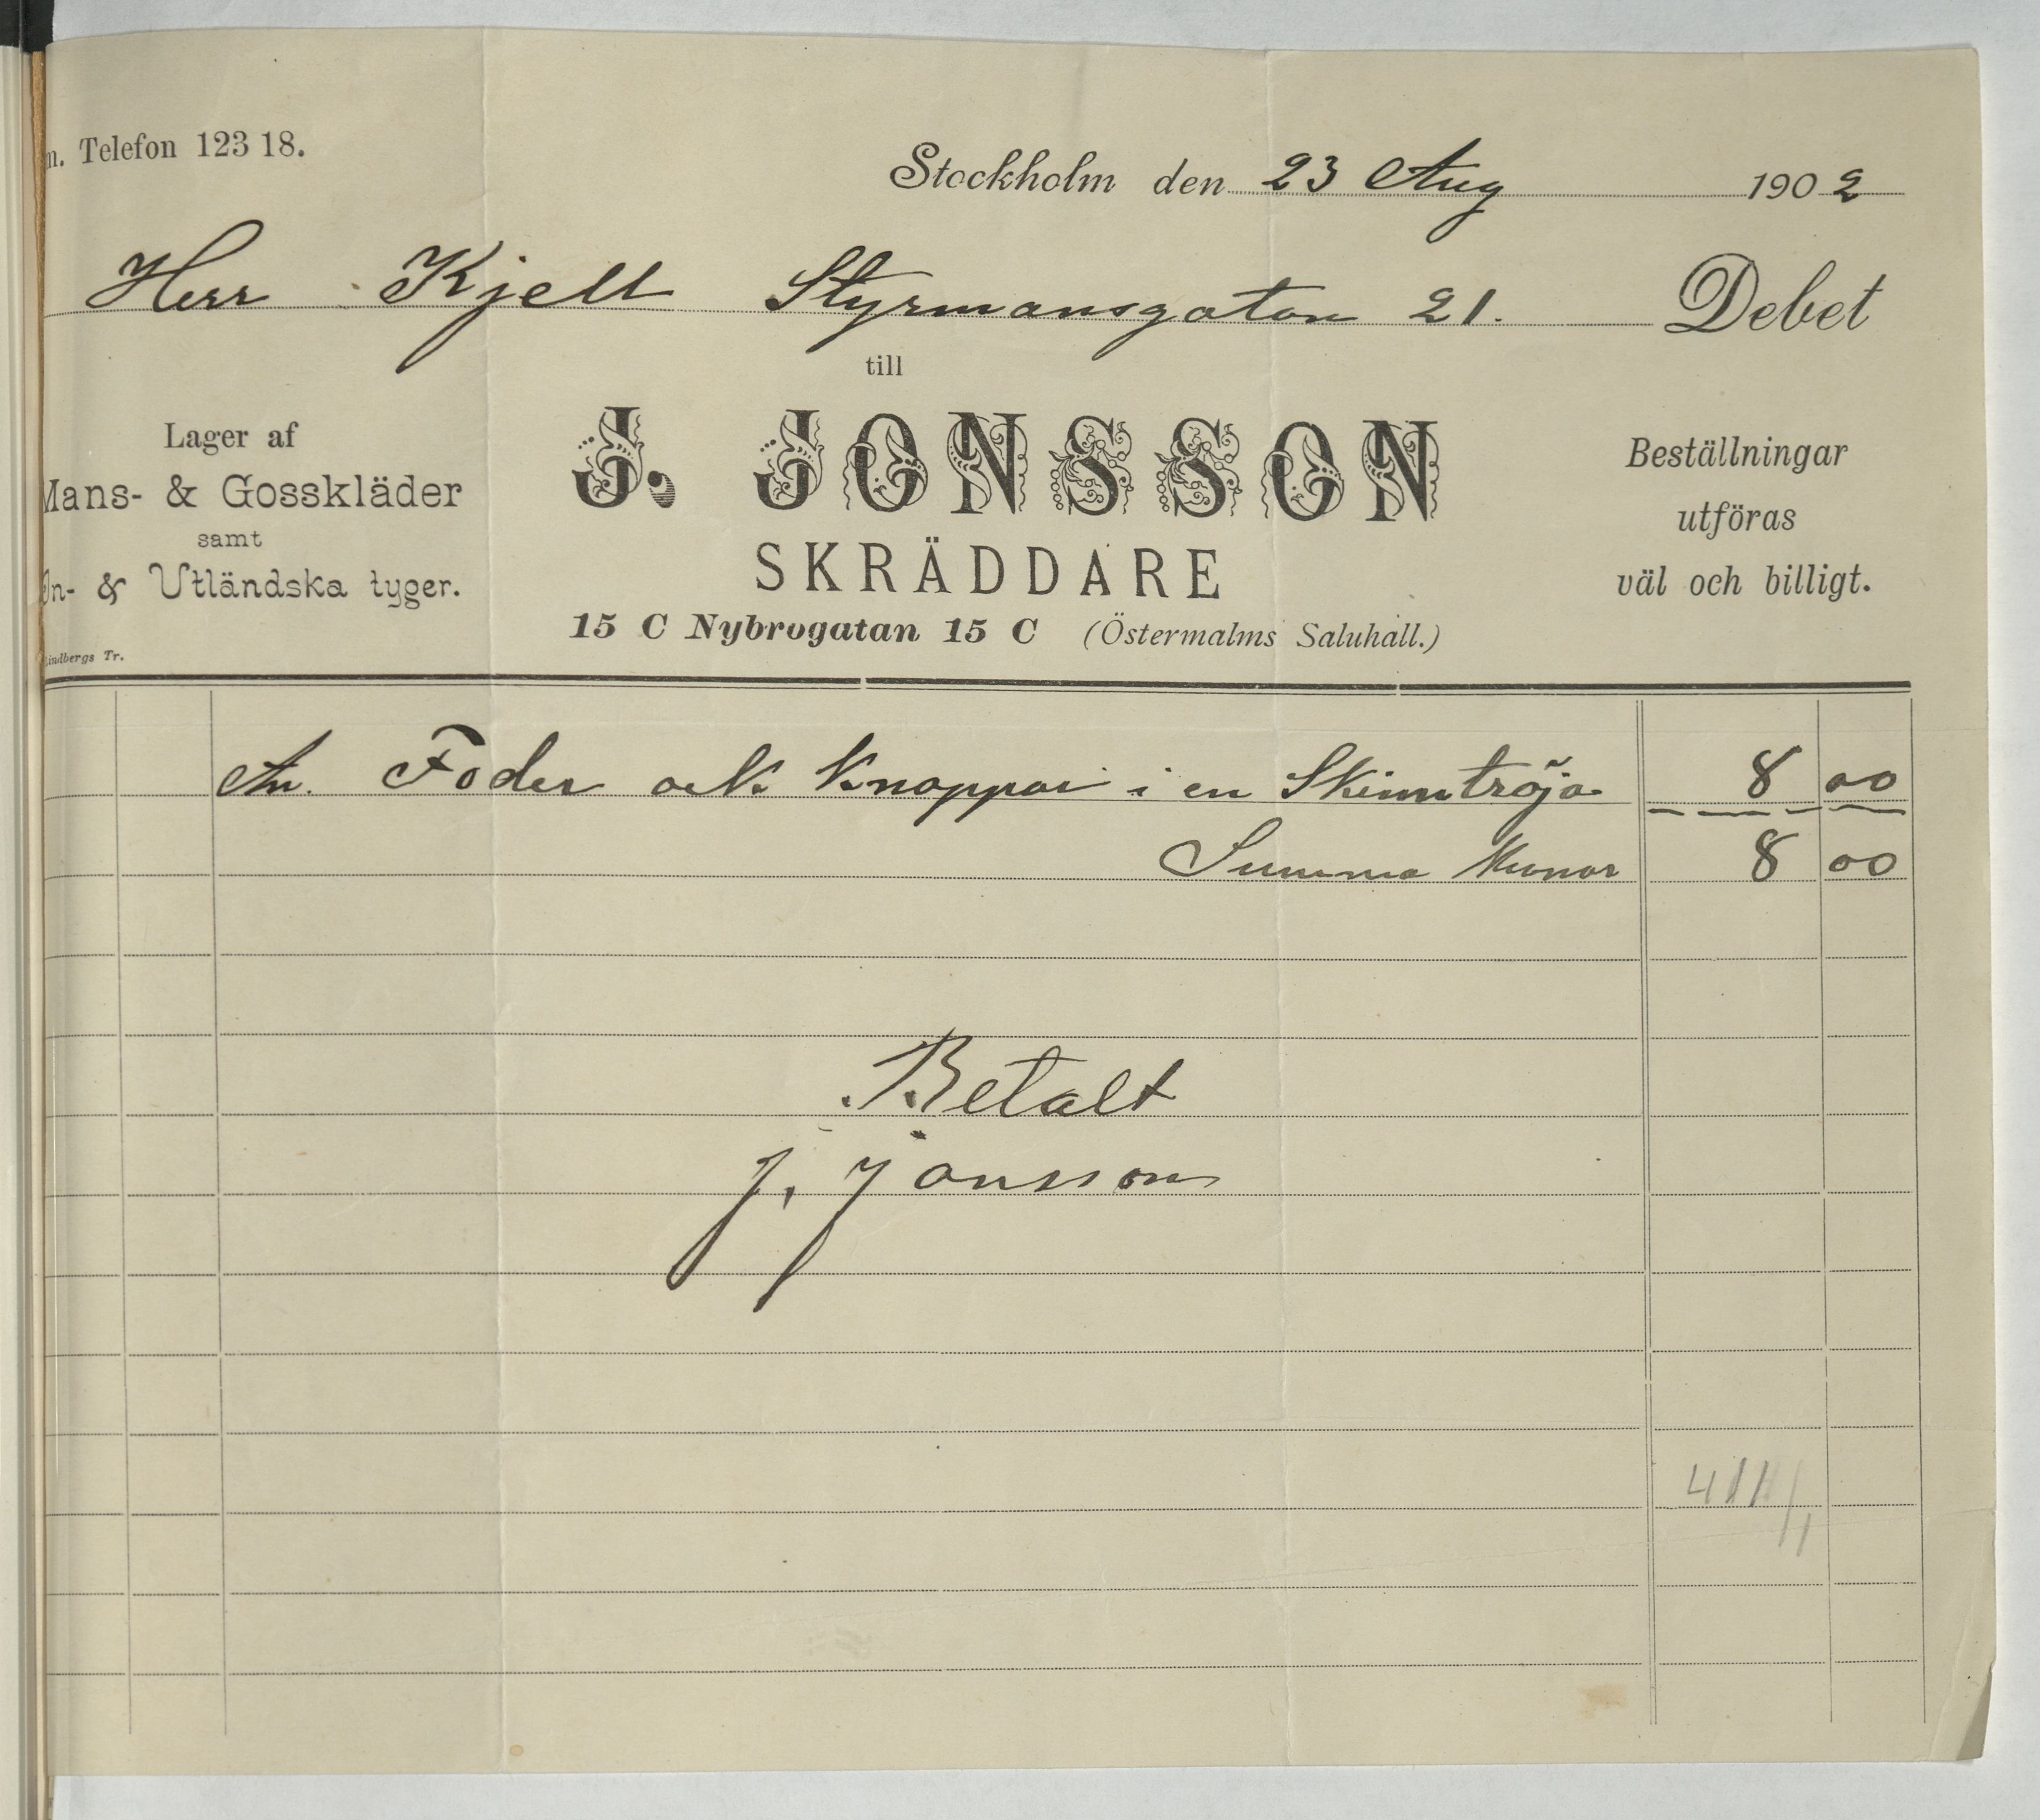 m. Telefon 123 18.
Stockholm den 23 Aug 1902
Herr Kjell Styrmansgatan 21. Debet
till
Lager af
Mans- & Gosskläder
samt
In- & Utländska tyger.
Lindbergs Tr.
J. JONSSON
SKRÄDDARE
15 C Nybrogatan 15 C (Östermalms Saluhall.)
Beställningar
utföras
väl och billigt.
Foder ock Knappar i en Skinntröja 8 00
Summa Kronor 8 00
Betalt
J. Jonsson